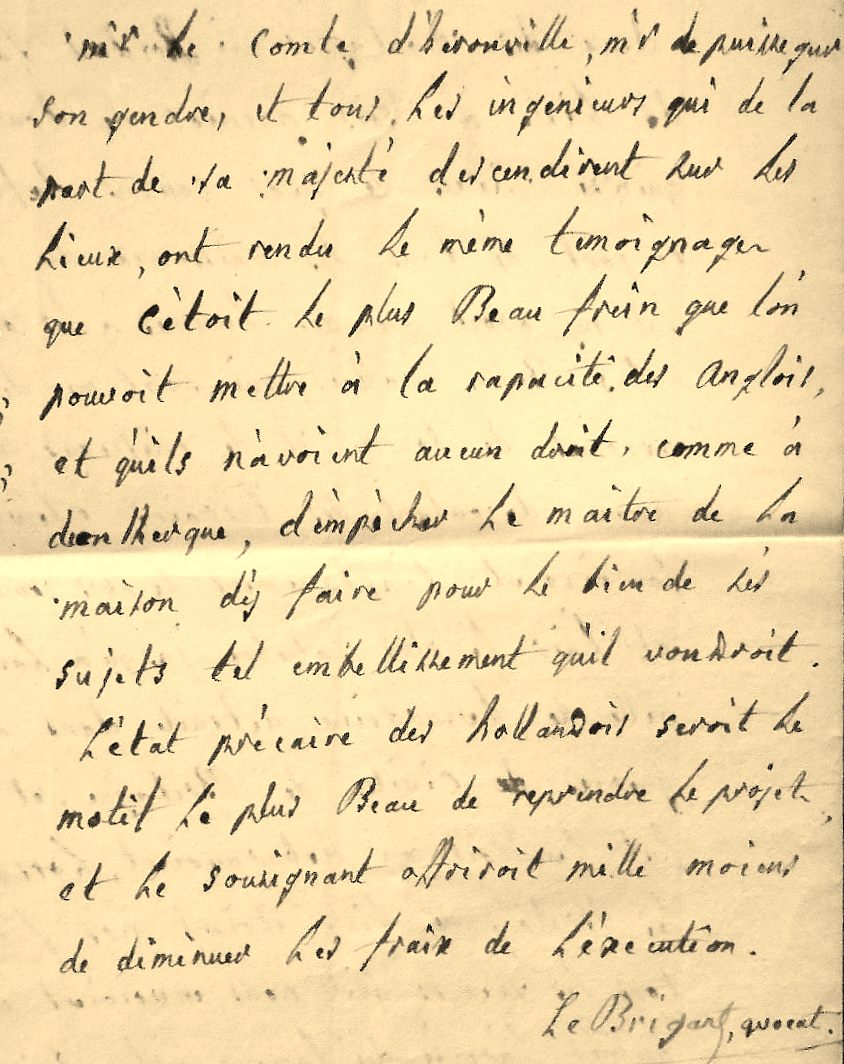 mr le comte d'hérouville, mr de puissegur
son gendre, et tous les ingenieurs qui de la
part de sa majesté descendirent sur les
lieux, ont rendu le même temoignage
que c'étoit le plus Beau frein que l'on
pouvoit mettre à la rapacité des anglois,
et qu'ils n'avoient aucun droit, comme à
dunkerque, d'empêcher le maitre de la
maison d'ÿ faire pour le bien de ses
sujets tel embellissement qu'il voudroit.
L'état précaire des hollandois seroit le
motif le plus Beau de reprendre le projet,
et le sousignant offriroit mille moiens
de diminuer les fraix de l'éxecution.
Le Brigant, avocat.